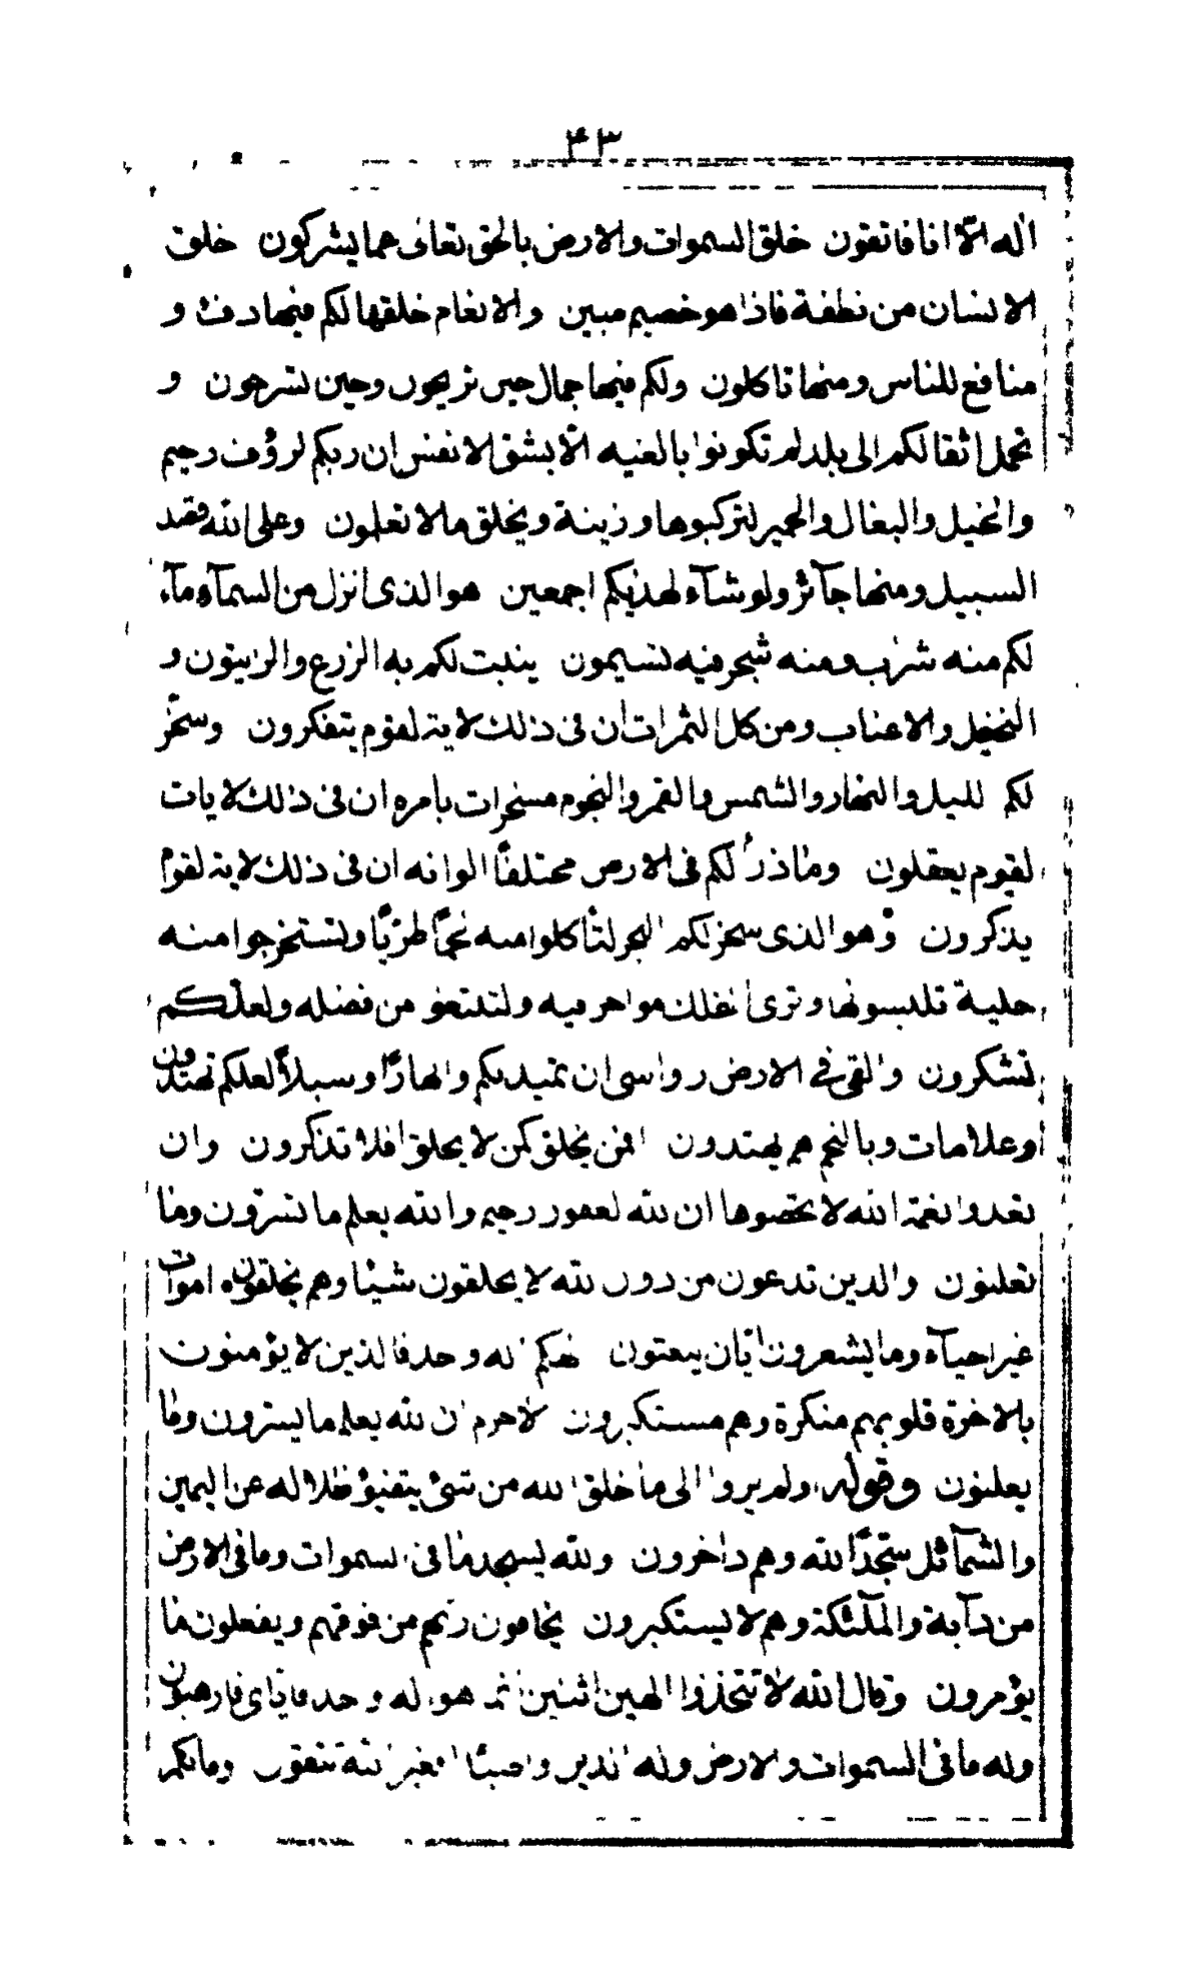 ۴۳
اله الّا انا فاتقون خلق السموات والارض بالحق تعالى عما يشركون خلق
الانسان من نطفة فاذا هو خصيم مبين والانعام خلقها لكم فيها دفئ و
منافع للناس ومنها تاكلون ولكم فيها جمال حين تريحون وحين تسرحون و
تحمل اثقالكم الى بلد لم تكونوا بالغيه الّا بشق الانفس ان ربكم لرؤف رحيم
والخيل والبغال والحمير لتركبوها وزينة ويخلق ما لا تعلمون وعلى الله قصد
السبيل ومنها جآئر ولو شآء لهديكم اجمعين هو الذى انزل من السمآء مآء
لكم منه شراب ومنه شجر فيه تسيمون ينبت لكم به الزرع والزيتون و
النخيل والاعناب ومن كل الثمرات ان فى ذلك لاية لقوم يتفكرون وسخّر
لكم الليل والنهار والشمس والقمر والنجوم مسخرات بامره ان فى ذلك لايات
لقوم يعقلون وما ذرأ لكم فى الارض مختلفًا الوانه ان فى ذلك لاية لقوم
يذكرون وهو الذى سخر لكم البحر لتاكلوا منه لحمًا طريًّا وتستخرجوا منه
حلية تلبسونها وترى الفلك مواخر فيه ولتبتغو من فضله ولعلّكم
تشكرون والقى فى الارض رواسى ان تميد بكم وانهارًا وسبلًا لعلكم تهتدون
وعلامات وبالنجم هم يهتدون افمن يخلق كمن لا يخلق افلا تذكرون وان
تعدوا نعمة الله لا تحصوها ان الله لغفور رحيم والله يعلم ما تسرّون وما
تعلنون والذين تدعون من دون الله لا يخلقون شيئا وهم يخلقون اموات
غير احيآء وما يشعرون ايّان يبعثون الهكم اله وحد فالذين لا يؤمنون
بالاخرة قلوبهم منكرة وهم مستكبرون لا جرم ان الله يعلم ما يسرّون وما
يعلنون وقوله اولم يروا الى ما خلق الله من شئ يتفيؤ ظلاله عن اليمين
والشمآئل سجّدًا لله وهم داخرون ولله يسجد ما فى السموات وما فى الارض
من دآبة والملآئكة وهم لا يستكبرون يخافون ربّهم من فوقهم ويفعلون ما
يؤمرون وقال الله لا تتخذوا الهين اثنين انما هو اله وحد فاياى فارهبون
وله ما فى السموات والارض وله الدين واصبًا افغير الله تتقون وما بكم